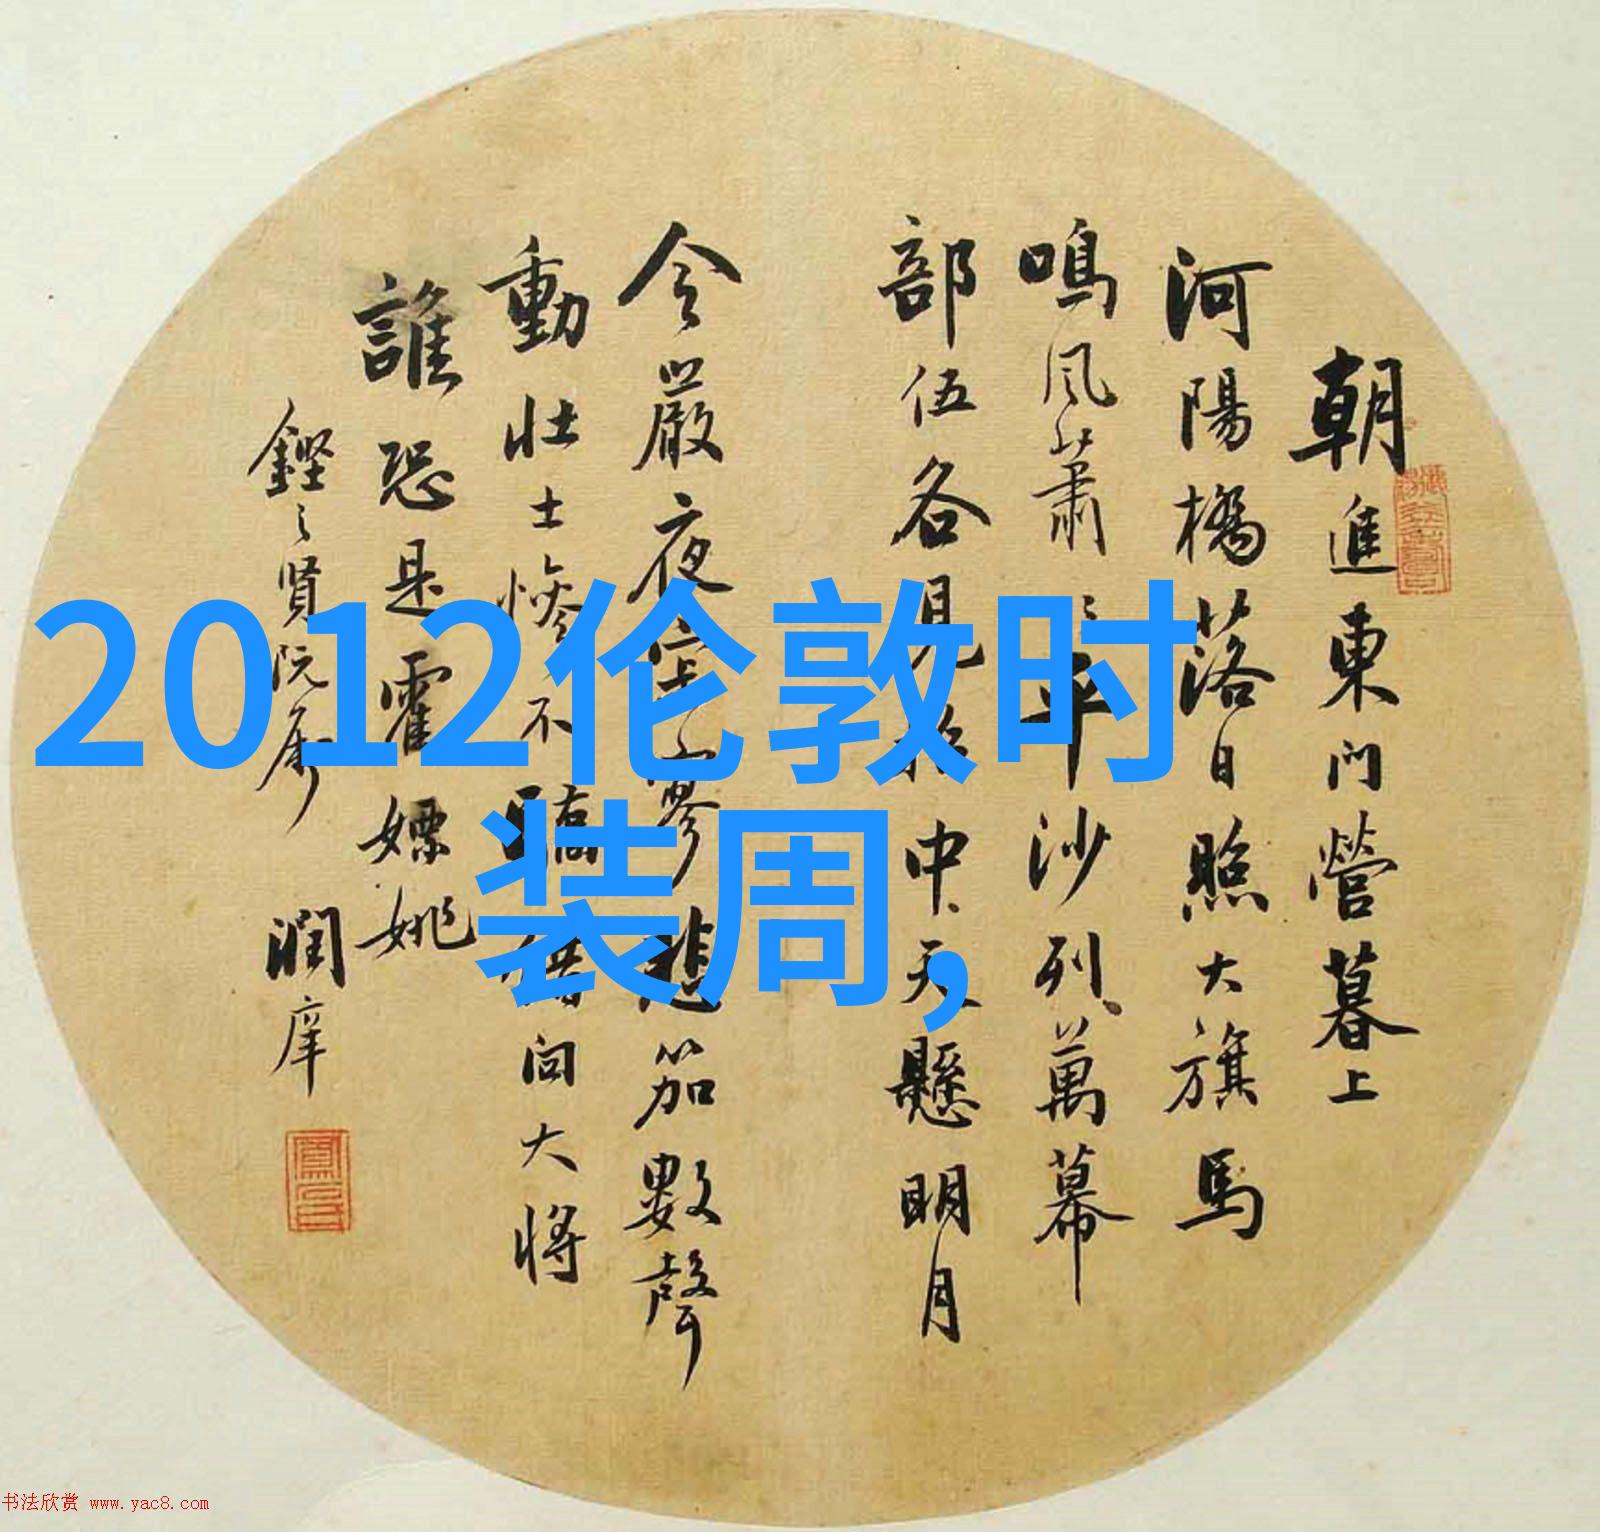 2012伦敦时
装周,
朝進東門營暮上
河陽橋落日照大旗馬
鳴風蕭〻平沙列萬幕
部伍各見招中天懸明月
令嚴夜寂寥悲笳數聲
動壯士慘不驕借問大將
誰恐是霍嫖姚
鏗之賢阮屬
潤庠
书法欣赏 www.yac8.com